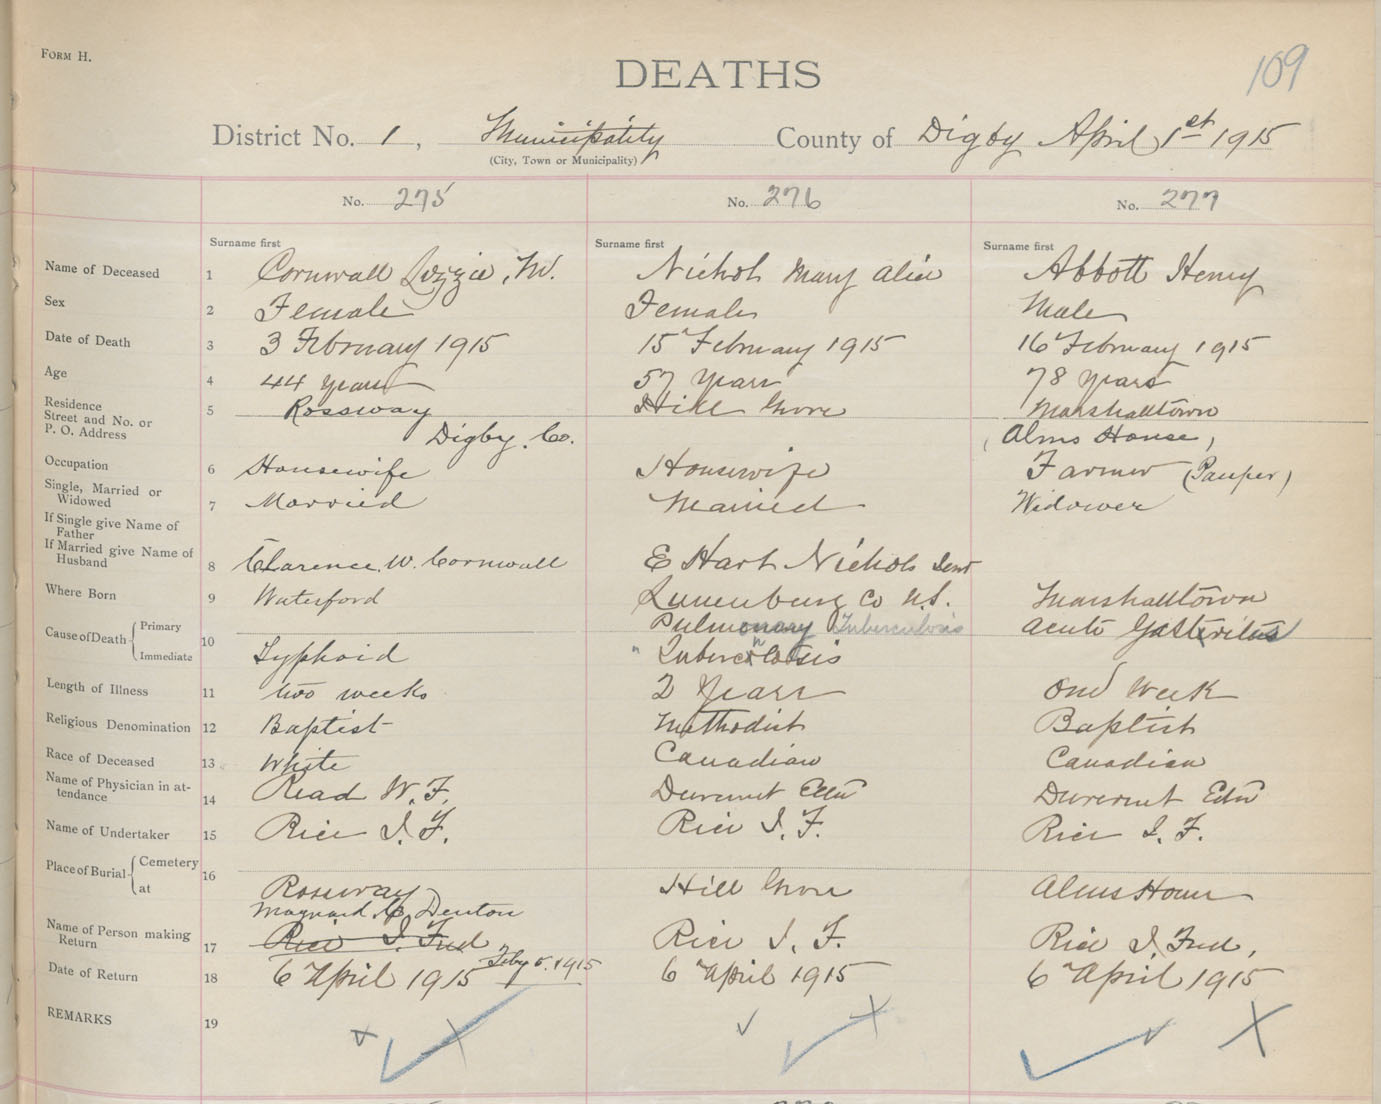 FORM H.
109
DEATHS
District No. 1, Municipality County of Digby April 1st 1915
(City, Town or Municipality)
No. 275 No. 276 No. 277
Surname first Surname first Surname first
Name of Deceased 1 Cornwall Lizzie, M. Nichols Mary Alice Abbott Henry
Sex 2 Female Female Male
Date of Death 3 3 February 1915 15" February 1915 16" February 1915
Age 4 44 years 57 Years 78 Years
Residence
Street and No. or
P. O. Address 5 Rossway Hill Grove Marshalltown
Digby. Co. (Alms House,)
Occupation 6 Housewife Housewife Farmer (Pauper)
Single, Married or
Widowed 7 Married Married Widower
If Single give Name of
Father
If Married give Name of
Husband 8 Clarence. W. Cornwall E Hart Nichols Dent
Where Born 9 Waterford Lunenburg Co N.S. Marshalltown
Cause of Death Primary Pulmonary Tuberculosis Acute Gastritis
Immediate 10 Typhoid " Tuberculosis
Length of Illness 11 two weeks 2 Years One Week
Religious Denomination 12 Baptist Methodist Baptist
Race of Deceased 13 White Canadian Canadian
Name of Physician in at-
tendance 14 Read W. F. Duvernet Edw Duvernet Edw
Name of Undertaker 15 Rice I. F. Rice I. F. Rice I. F.
Place of Burial Cemetery
at 16 Rossway Hill Grove Alms House
Maynard C. Denton
Name of Person making
Return 17 Rice I. Fred Rice I. F. Rice I. Fred,
Date of Return 18 6" April 1915 Feby 5. 1915 6" April 1915 6" April 1915
REMARKS 19